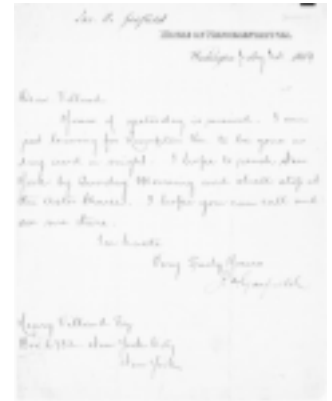 Jas. A. Garfield
House of Representatives,
Washington,
Dear Villard.
Yours of yesterday is received. I am
just leaving for Hampton Va. to be gone a
day and a night. I hope to reach New
York by Sunday Morning and shall stop at
the Astor House. I hope you can call and
see me there.
In haste
Very Truly Yours
J A Garfield
Henry Villard Esq
New York City
New York